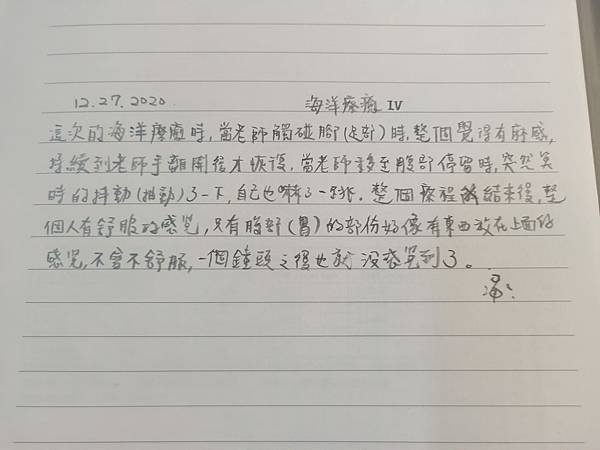 12.27.2020 海洋療癒 IV
這次的海洋療癒時,當老師觸碰腳(足部)時,整個覺得有麻感,
持續到老師手離開後才恢復,當老師移至腹部停留時,突然笑
時的抖動(抽動)了一下,自己也嚇了一跳.整個療程結束後,整
個人有舒服的感覺,只有腹部(胃)的部份好像有東西放在上面的
感覺,不會不舒服,一個鐘頭之後也就沒感覺到了。